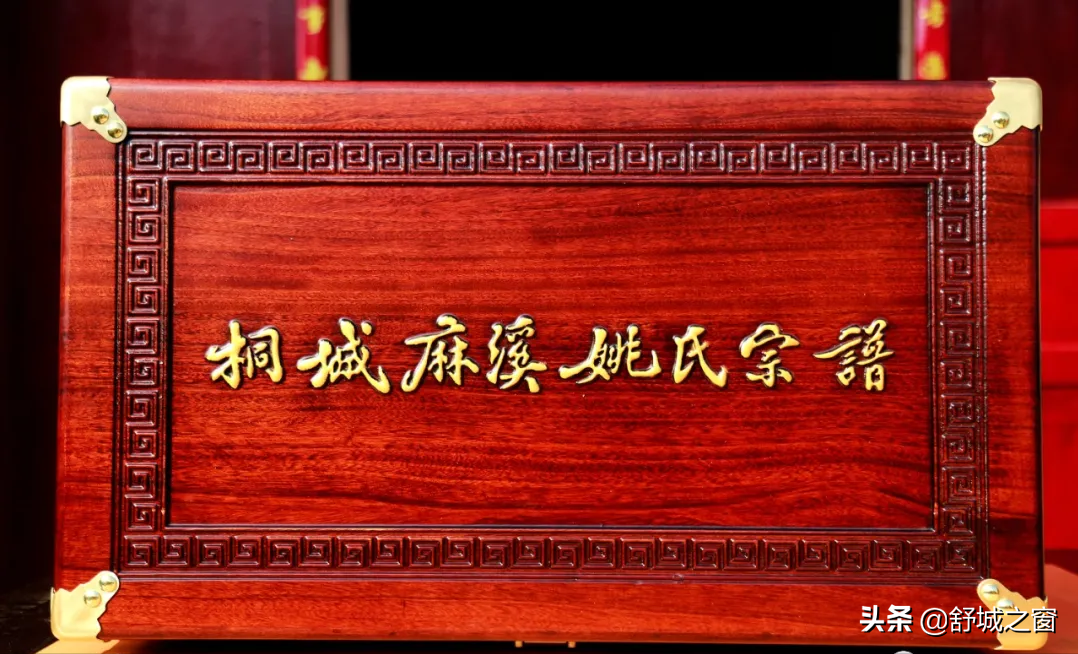 桐城麻溪姚氏宗譜
头条 @舒城之窗